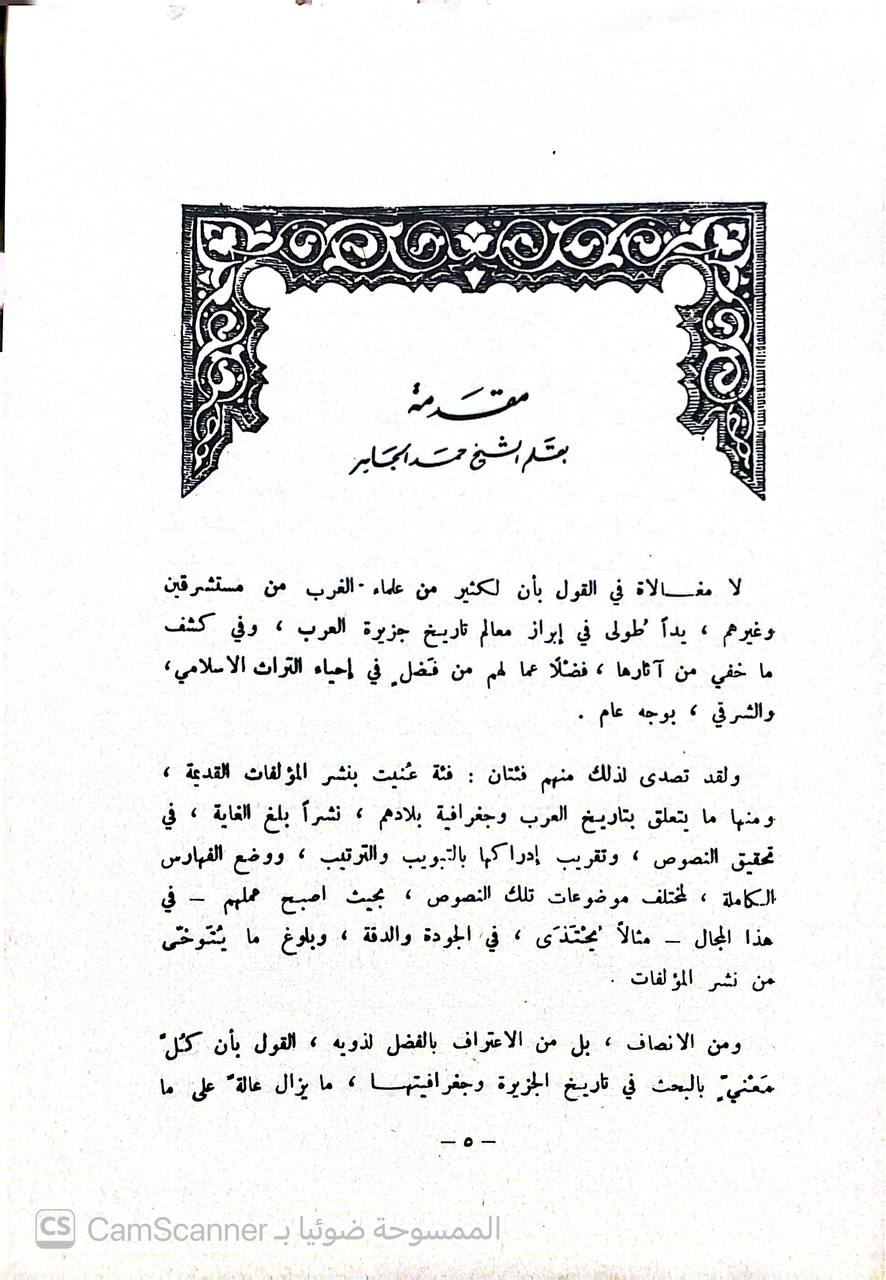 مقدمة
بقلم الشيخ حمد الجاسر
لا مغـــالاة في القول بأن لكثير من علماء الغرب من مستشرقين
وغيرهم ، يداً طُولى في إبراز معالم تاريخ جزيرة العرب ، وفي كشف
ما خفي من آثارها ، فضْلًا عما لهم من فَضل ٍ في إحياء التراث الاسلامي ،
والشرقي ، بوجه عام .
ولقد تصدى لذلك منهم فئتان : فئة عُنيت بنشر المؤلفات القديمة ،
ومنها ما يتعلق بتاريخ العرب وجغرافية بلادهم ، نشراً بلغ الغاية ، في
تحقيق النصوص ، وتقريب إدراكها بالتبويب والترتيب ، ووضع الفهارس
الكاملة ، لمختلف موضوعات تلك النصوص ، بحيث اصبح عملهم – في
هذا المجال – مثالاً يُحْتَذَى ، في الجودة والدقة ، وبلوغ ما يُتَوخّى
من نشر المؤلفات .
ومن الانصاف ، بل من الاعتراف بالفضل لذويه ، القول بأن كُلّ
مَعْنيّ ٍ بالبحث في تاريخ الجزيرة وجغرافيتهـــا ، ما يزال عالةً على ما
– ٥ –
CS CamScanner الممسوحة ضوئيا بـ